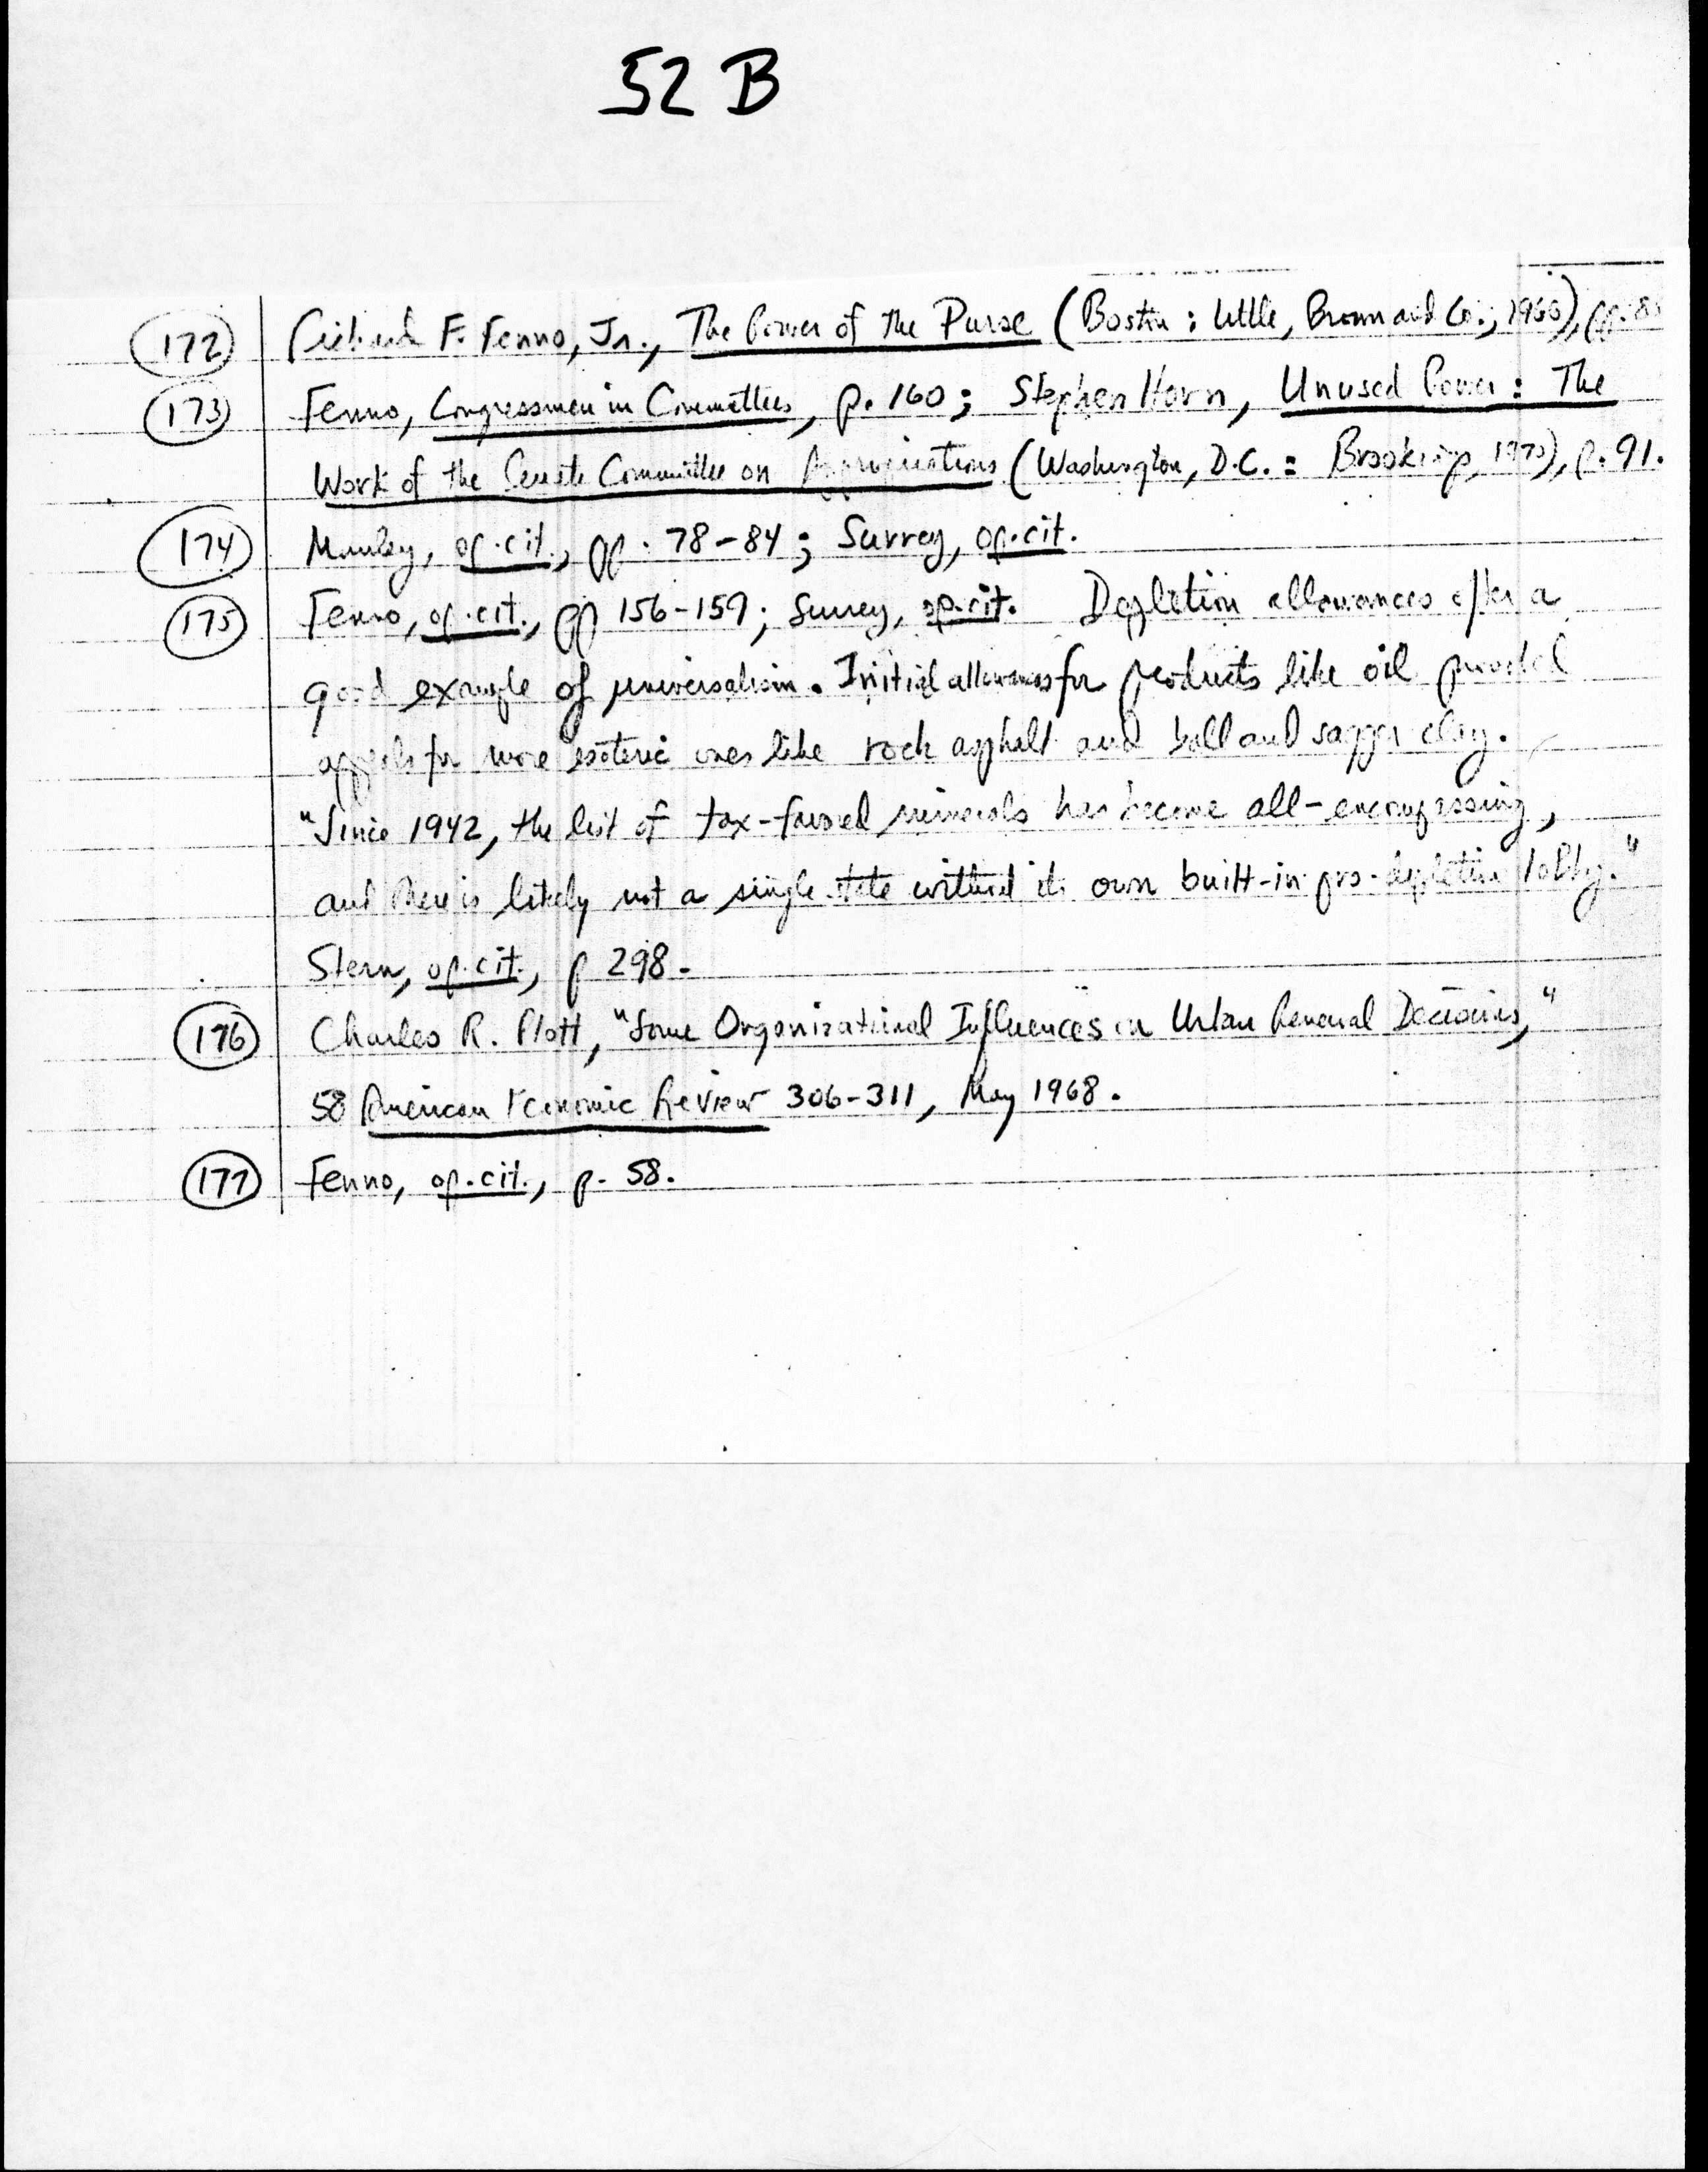 52 B
172 Richard F. Fenno, Jr., The Power of the Purse (Boston: Little, Brown and Co., 1966), pp. 8
173 Fenno, Congressmen in Committees, p. 160; Stephen Horn, Unused Power: The
Work of the Senate Committee on Appropriations (Washington, D.C.: Brookings, 1970), p. 91.
174 Manley, op. cit., pp. 78-84; Surrey, op. cit.
175 Fenno, op. cit., pp 156-159; Surrey, op. cit. Depletion allowances offer a
good example of universalism. Initial allowances for products like oil
appeals for more esoteric ones like rock asphalt and ball and sagger clay.
"Since 1942, the list of tax-favored minerals has become all-encompassing,
and there is likely not a single state without its own built-in pro-depletion lobby."
Stern, op. cit., p 298.
176 Charles R. Plott, "Some Organizational Influences on Urban Renewal Decisions,"
58 American Economic Review 306-311, May 1968.
177 Fenno, op. cit., p. 58.